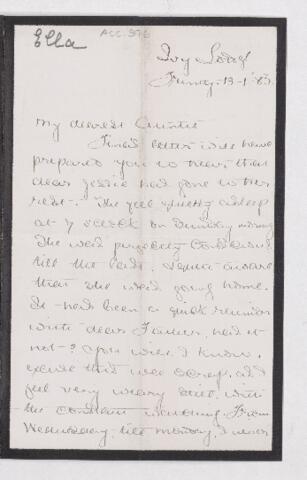 Ella
ACC. 376
Ivy Lodge
My dearest Auntie
letter will have
prepared you to hear that
dear Jessie had gone to her
rest. She fell quietly asleep
at 7 o'clock on Sunday morning
She was perfectly conscious
till the last. & quite aware
that she was going home.
It has been a quick reunion
with dear Father, has it
not? You will I know,
excuse this wee scrap, as I
feel very weary still, with
the constant watching. From
Wednesday till Monday, I never